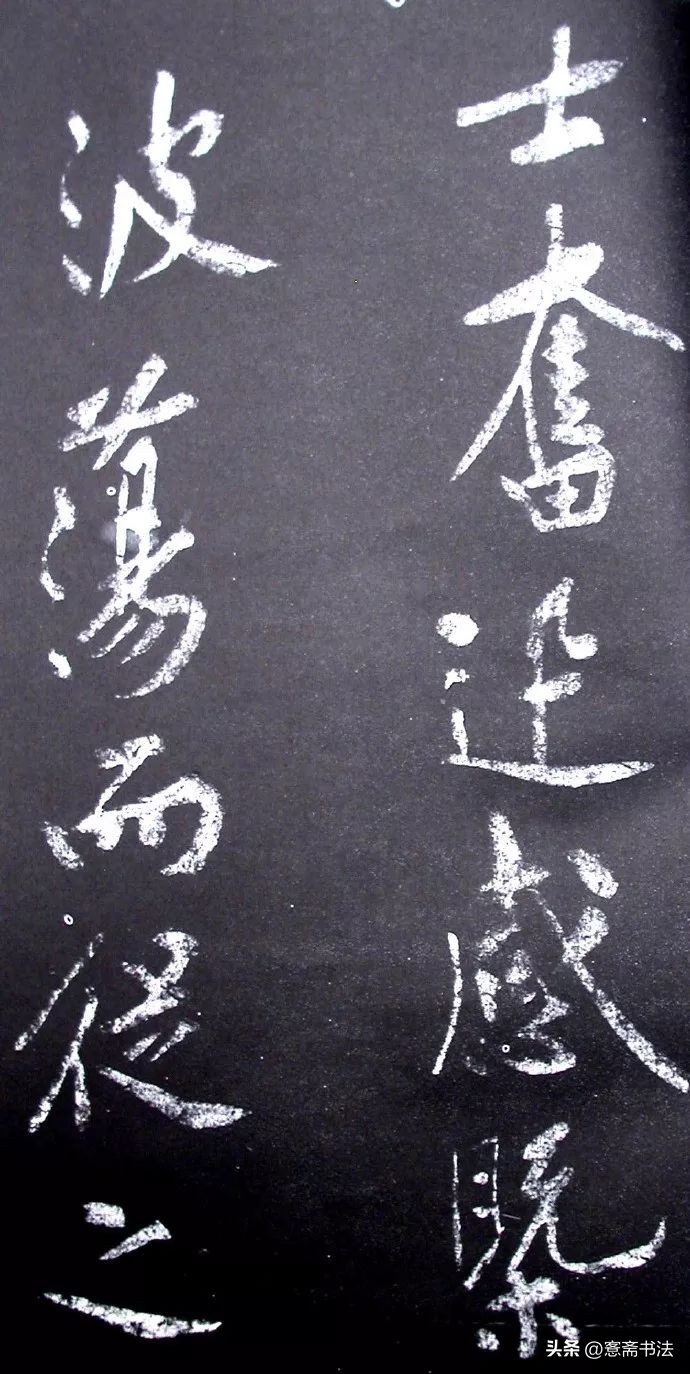 士奮迅感槩
波蕩而從之
头条 @斋书法